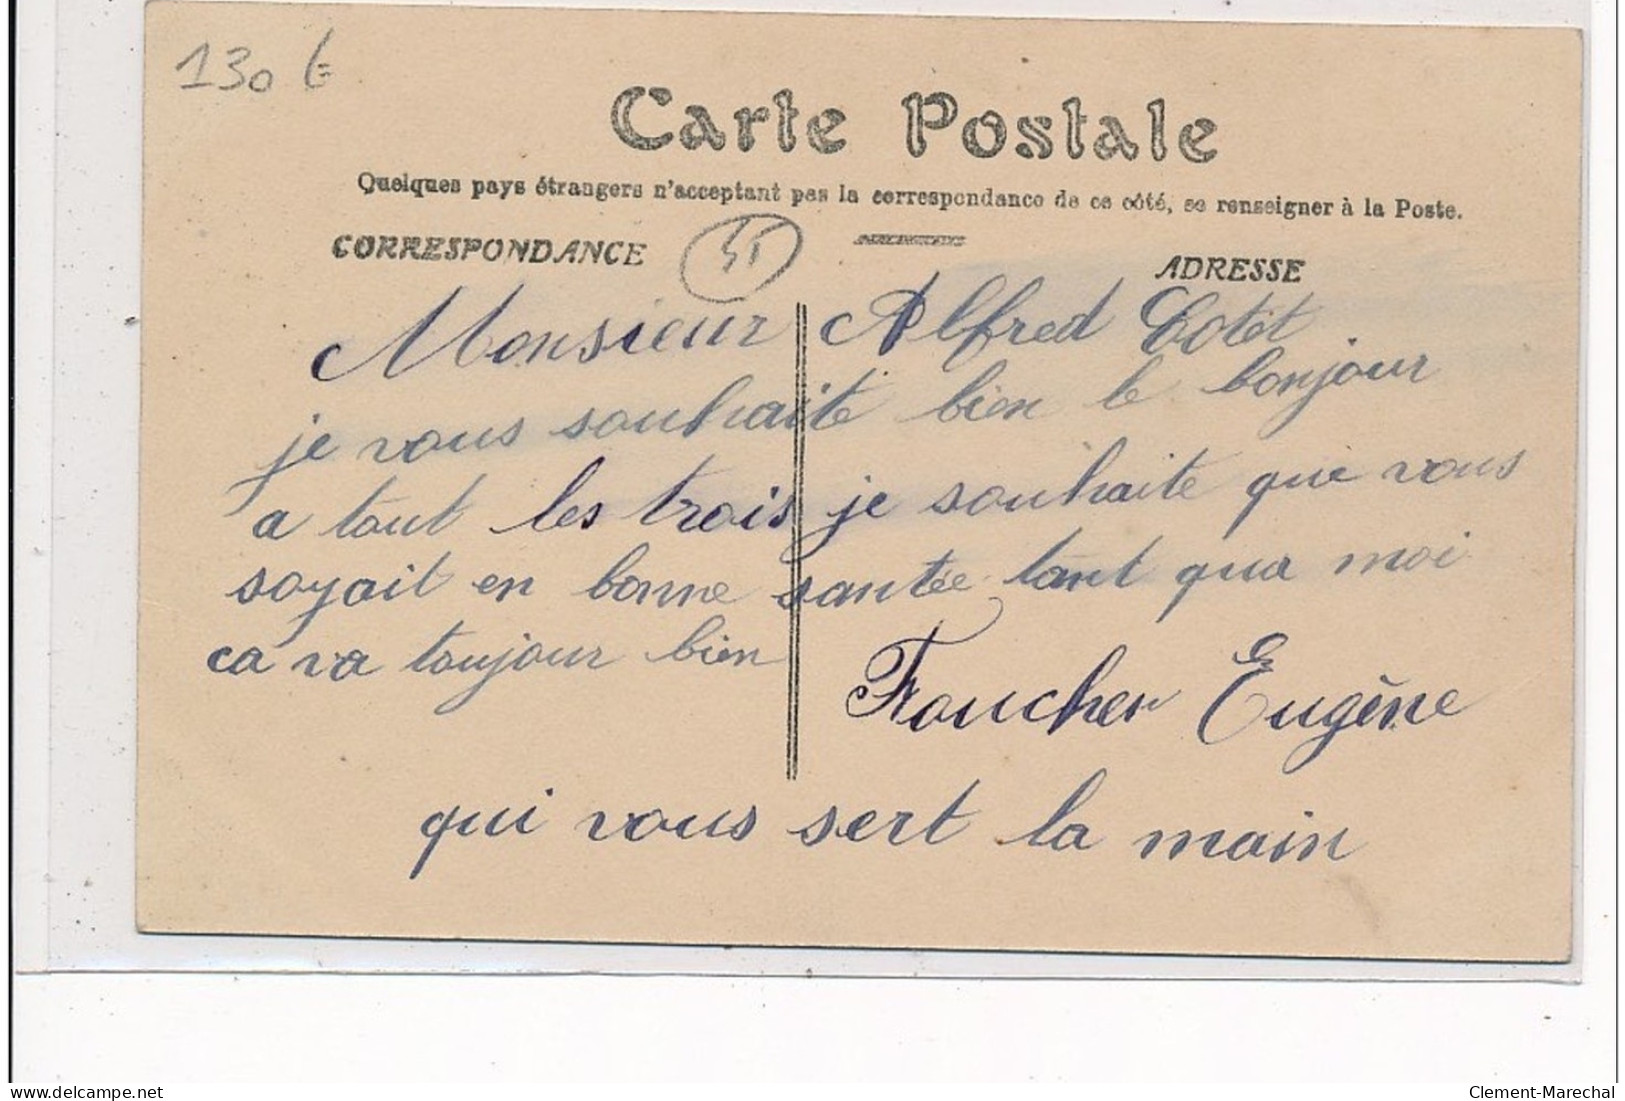 130 €
Carte Postale
Quelques pays étrangers n'acceptant pas la correspondance de ce côté, se renseigner à la Poste.
CORRESPONDANCE
51
ADRESSE
Monsieur Alfred Cotet
je vous souhaite bien le bonjour
a tout les trois je souhaite que vous
soyait en bonne santée tant qua moi
ca va toujour bien
Foucher Eugène
qui vous sert la main
delcampe.net
Clement-Marechal